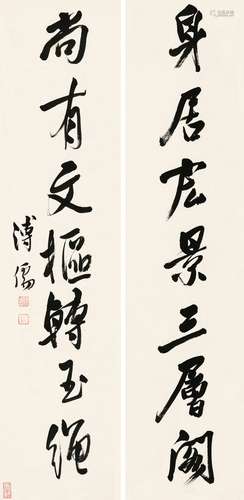 身居宏景三層閣
尚有文樞轉玉繩
溥儒